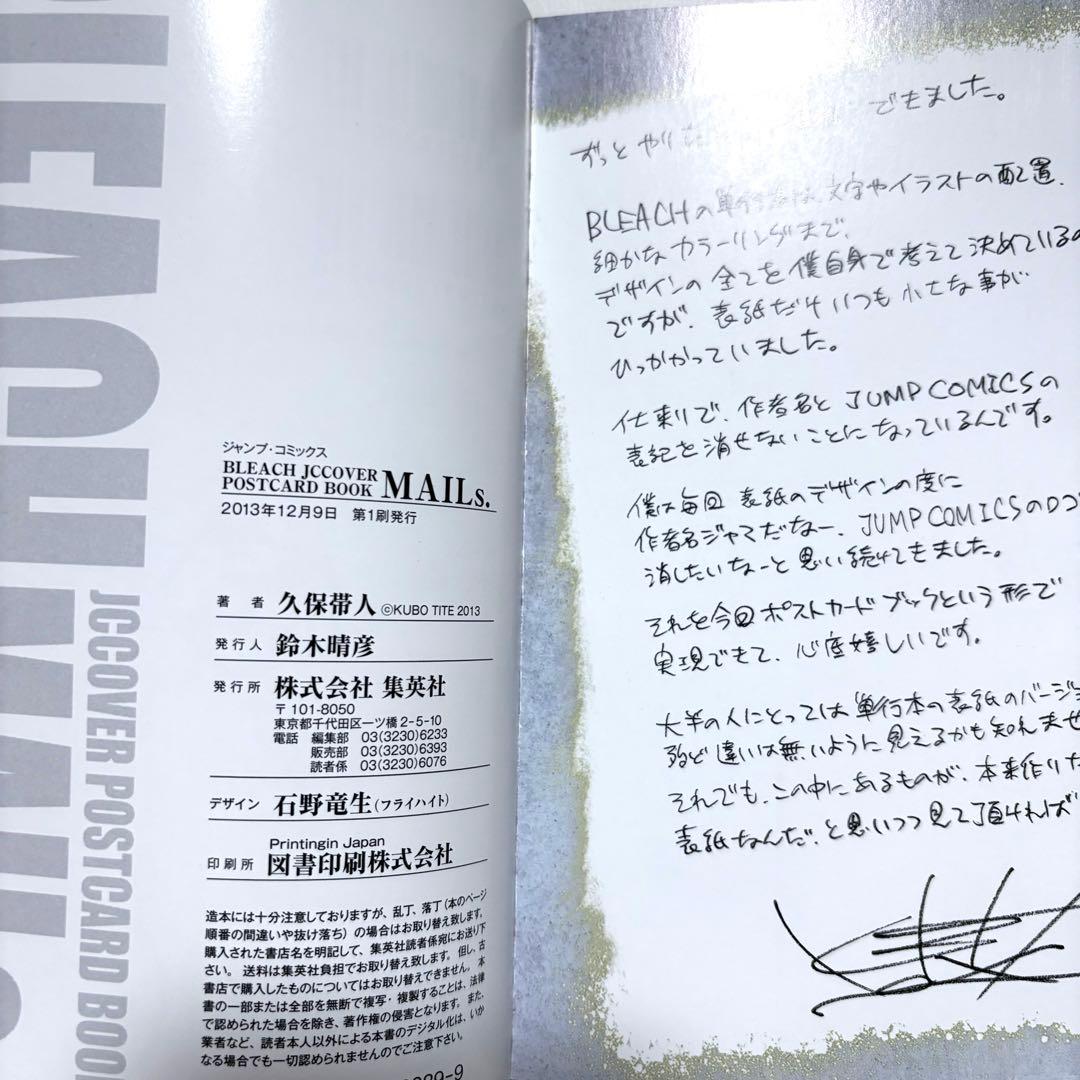 BLEACH MAILs.
JCCOVER POSTCARD BOOK
ジャンプ・コミックス
BLEACH JCCOVER
POSTCARD BOOK MAILs.
2013年12月9日 第1刷発行
著者 久保帯人 ©KUBO TITE 2013
発行人 鈴木晴彦
発行所 株式会社 集英社
〒101-8050
東京都千代田区一ツ橋2-5-10
電話 編集部 03(3230)6233
販売部 03(3230)6393
読者係 03(3230)6076
デザイン 石野竜生(フライハイト)
Printingin Japan
印刷所 図書印刷株式会社
造本には十分注意しておりますが、乱丁、落丁(本のページ
順番の間違いや抜け落ち)の場合はお取り替え致します。
購入された書店名を明記して、集英社読者係宛にお送り下
さい。送料は集英社負担でお取り替え致します。但し、古
書店で購入したものについてはお取り替えできません。本
書の一部または全部を無断で複写・複製することは、法律
で認められた場合を除き、著作権の侵害となります。また、
業者など、読者本人以外による本書のデジタル化は、いか
なる場合でも一切認められませんのでご注意下さい。
9-9
ずっと やりた できました。
BLEACHの単行本は、文字やイラストの配置、
細かなカラーリングまで、
デザインの全てを僕自身で考えて決めているの
ですが、表紙だけいつも小さな事が
ひっかかっていました。
仕来りで、作者名と JUMP COMICSの
表記を消せないことになっているんです。
僕は毎回 表紙のデザインの度に
作者名ジャマだなー、JUMP COMICSのロゴ
消したいなーと思い続けてきました。
それを今回 ポストカードブックという形で
実現できて、心底嬉しいです。
大半の人にとっては単行本の表紙のバージョ
殆ど違いは無いように見えるかも知れませ
それでも、この中にあるものが、本来作りた
表紙なんだ、と思いつつ見て頂ければ